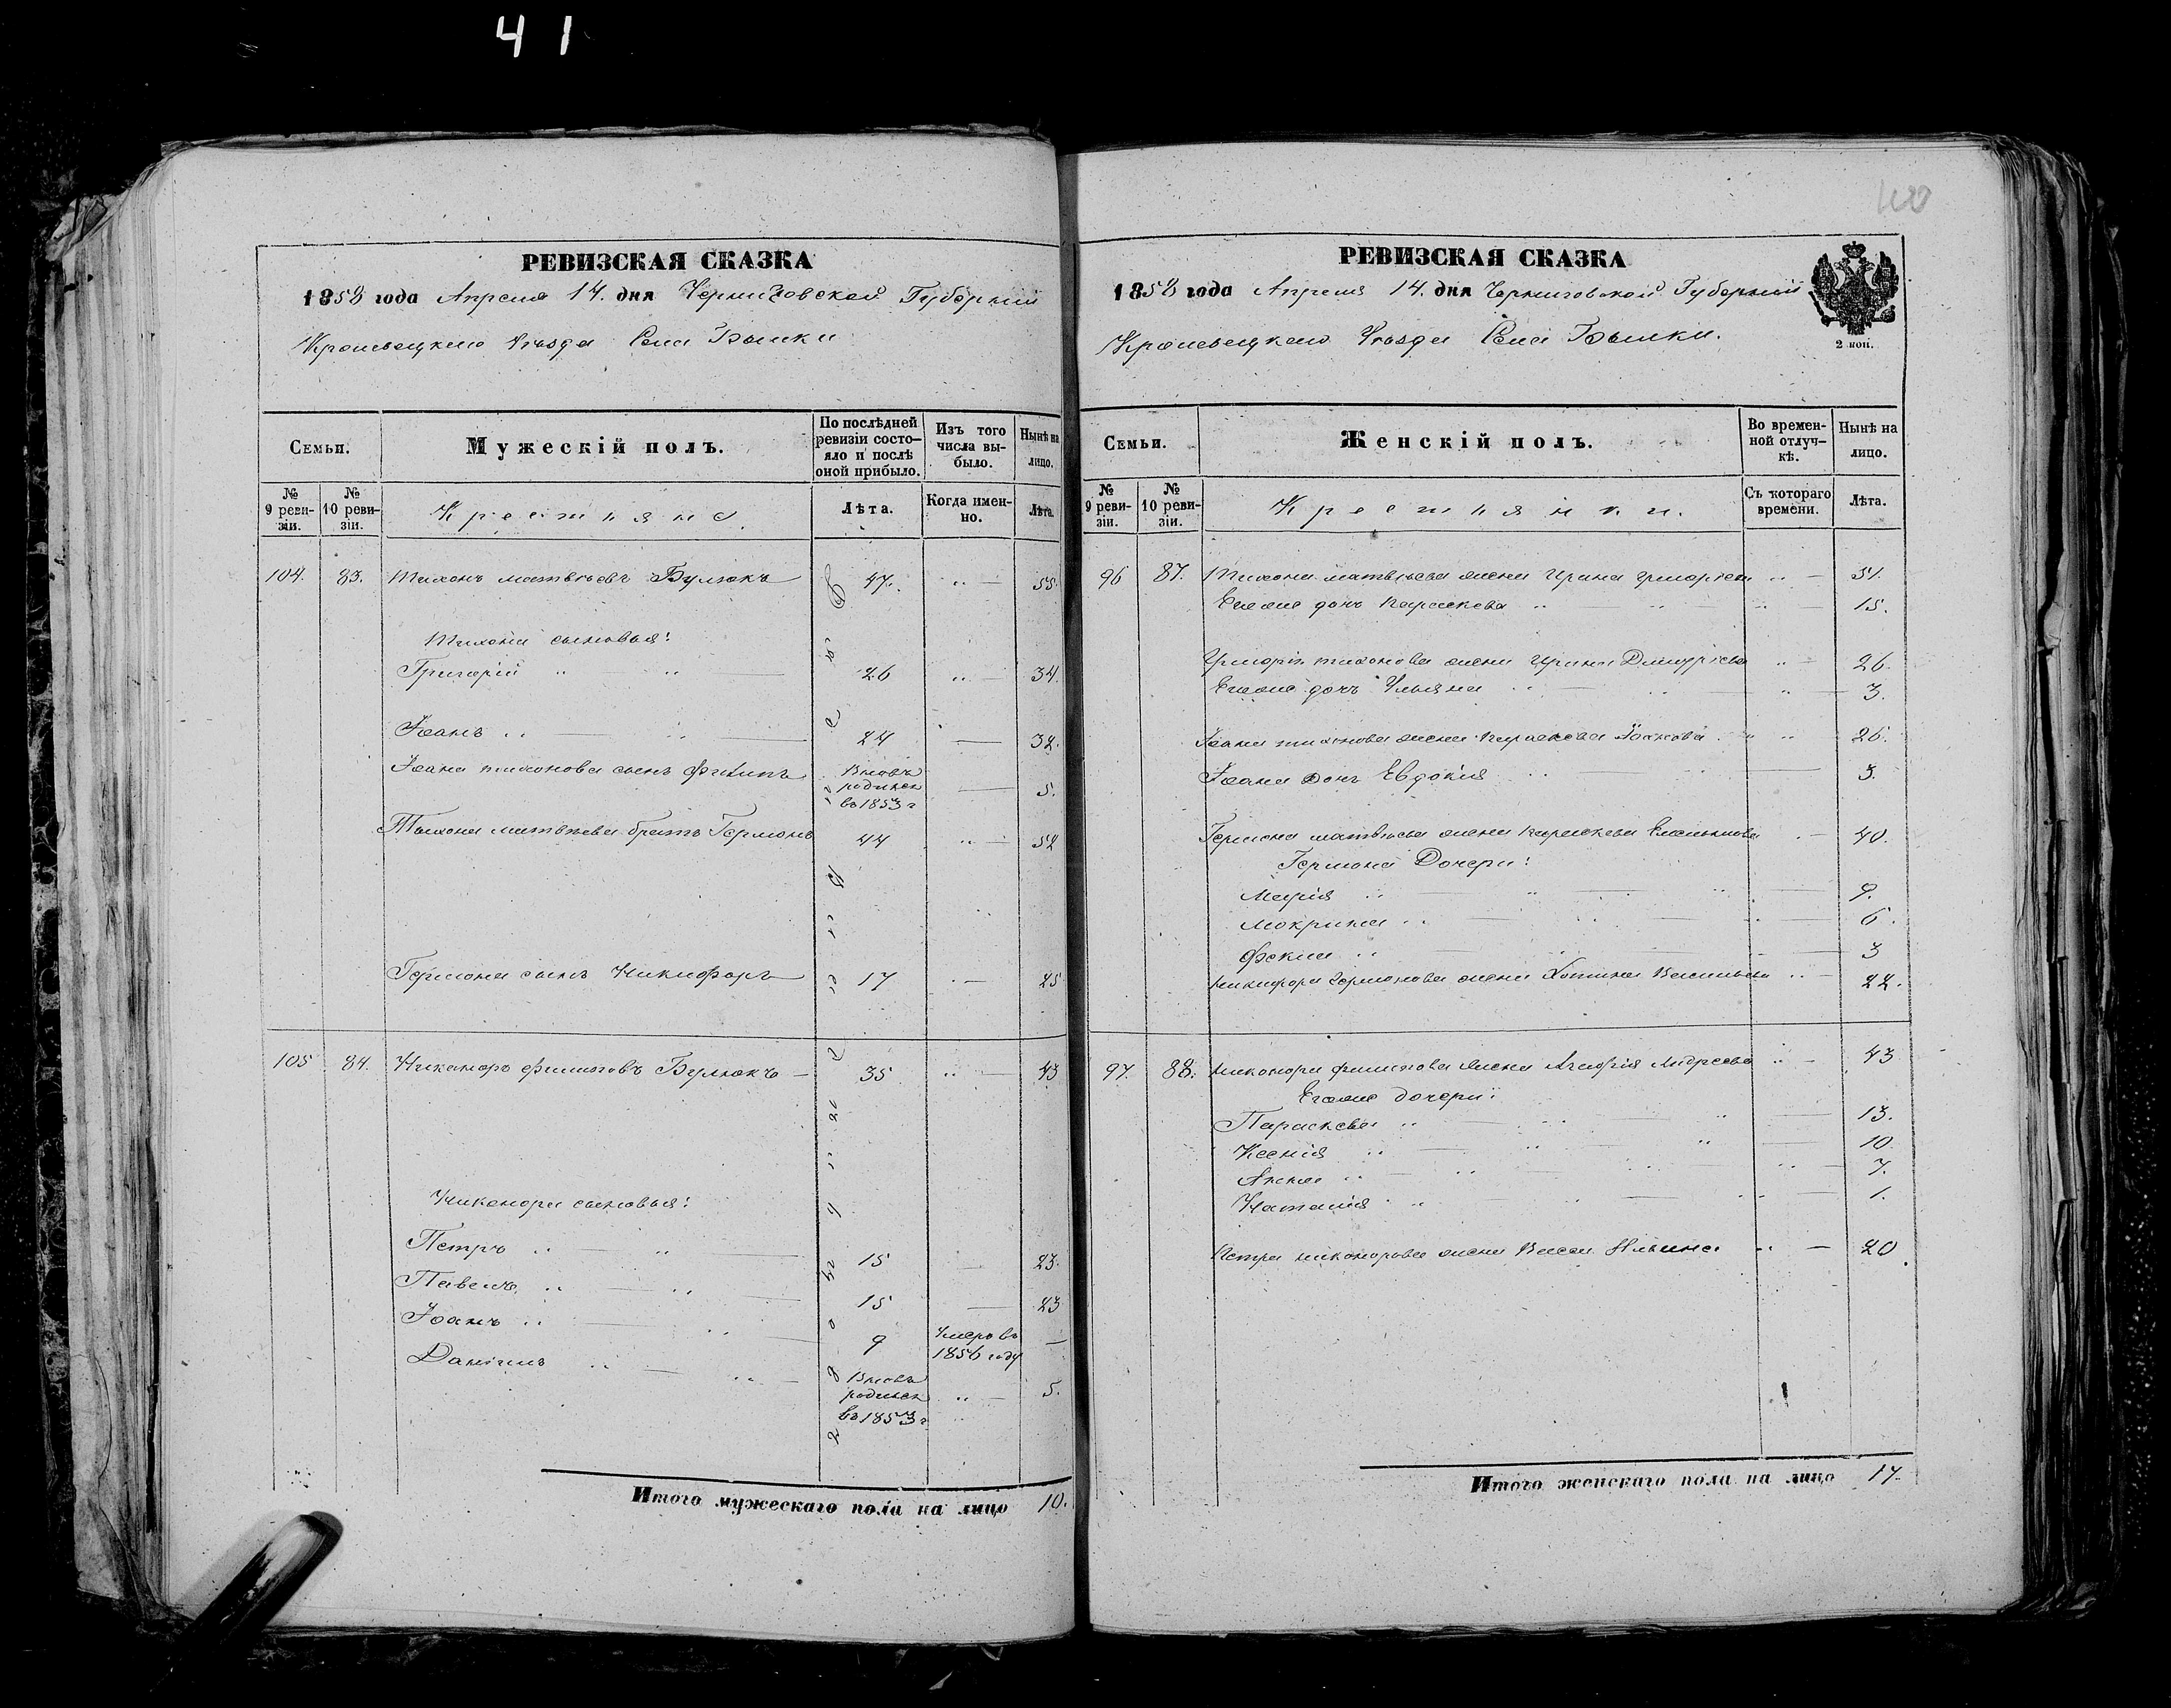 41
РЕВИЗСКАЯ СКАЗКА
1858 года Апреля 14. дня Черниговской Губерніи
Кролевецкаго Уѣзда Села Былки
Семьи.
Мужескій полъ.
По послѣдней ревизіи состо-
яло и послѣ
оной прибыло.
Изъ того
числа вы-
было.
Нынѣ на
лицо.
№
9 реви-
зіи.
№
10 реви-
зіи.
Крестьяне.
Лѣта.
Когда имен-
но.
Лѣта.
104. 83. Тихонъ матвѣевъ Булюкъ 47. 55.
Тихона сыновья:
Григорій 26 34.
Іоанъ 24 32.
Іоана тихонова сынъ Филипъ Вновь
родился
въ 1853 г 5.
Тихона матвѣева братъ Гермонъ 44 52
Гермона сынъ Никифоръ 17 25
105 84. Никаноръ филиповъ Булюкъ 35 43
Никанора сыновья:
Петръ 15 23.
Павелъ 15 23
Іоанъ 9 Умеръ въ
1856 году —
Даніилъ Вновь
родился
въ 1853 г 5.
Итого мужескаго пола на лицо 10.
РЕВИЗСКАЯ СКАЗКА
1858 года Апреля 14. дня Черниговской Губерніи
Кролевецкаго Уѣзда Села Былки.
2 коп.
Семьи.
Женскій полъ.
Во времен-
ной отлуч-
кѣ.
Нынѣ на
лицо.
№
9 реви-
зіи.
№
10 реви-
зіи.
Крестьянки.
Съ котораго
времени.
Лѣта.
96 87. Тихона матвѣева жена Ирина григорьева 51.
Егоже дочь Параскева 15.
Григорія тихонова жена Ирина Дмитріева 26.
Егоже дочь Ульяна 3.
Іоана тихонова жена Параскева Іоанова 26.
Іоана дочь Евдокія 3.
Гермона матвѣева жена Параскева Емельянова 40.
Гермона Дочери:
Марія 9.
Мокрина 6.
Фекла 3
Никифора Гермонова жена Васильева 22.
97. 88. Никонора филипова жена Агафія Андреева 43
Егоже дочери:
Параскева 13.
Ксенія 10.
Анна 7.
Наталія 1.
Петра никонорова жена Васса Ильина 20.
Итого женскаго пола на лицо 17.